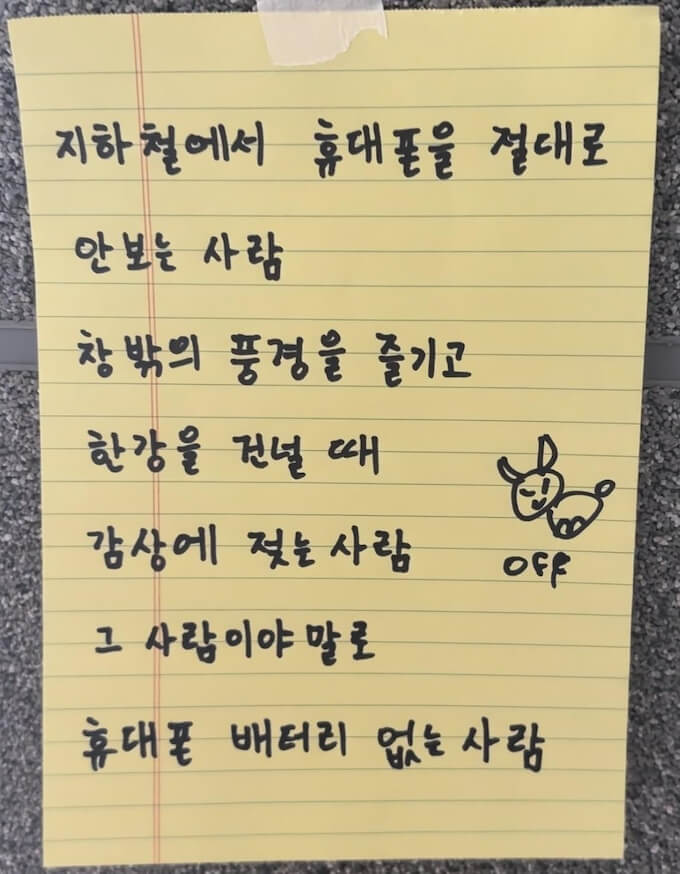 지하철에서 휴대폰을 절대로
안보는 사람
창밖의 풍경을 즐기고
한강을 건널 때
감상에 젖는 사람
OFF
그 사람이야말로
휴대폰 배터리 없는 사람